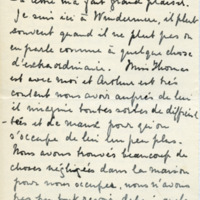 ta lettre m'a fait grand plaisir.
Je suis ici à Windermere, il pleut
souvent quand il ne pleut pas on
en parle comme à quelque chose
d'extraordinaire. Miss Thomas
est avec moi et Arthur est très
content nous avoir auprès de lui
il imagine toutes sortes de difficul-
tés et de maux pour qu'on
s'occupe de lui un peu plus.
Nous avons trouvé beaucoup de
choses négligées dans la maison
pour nous occuper, nous n'avons